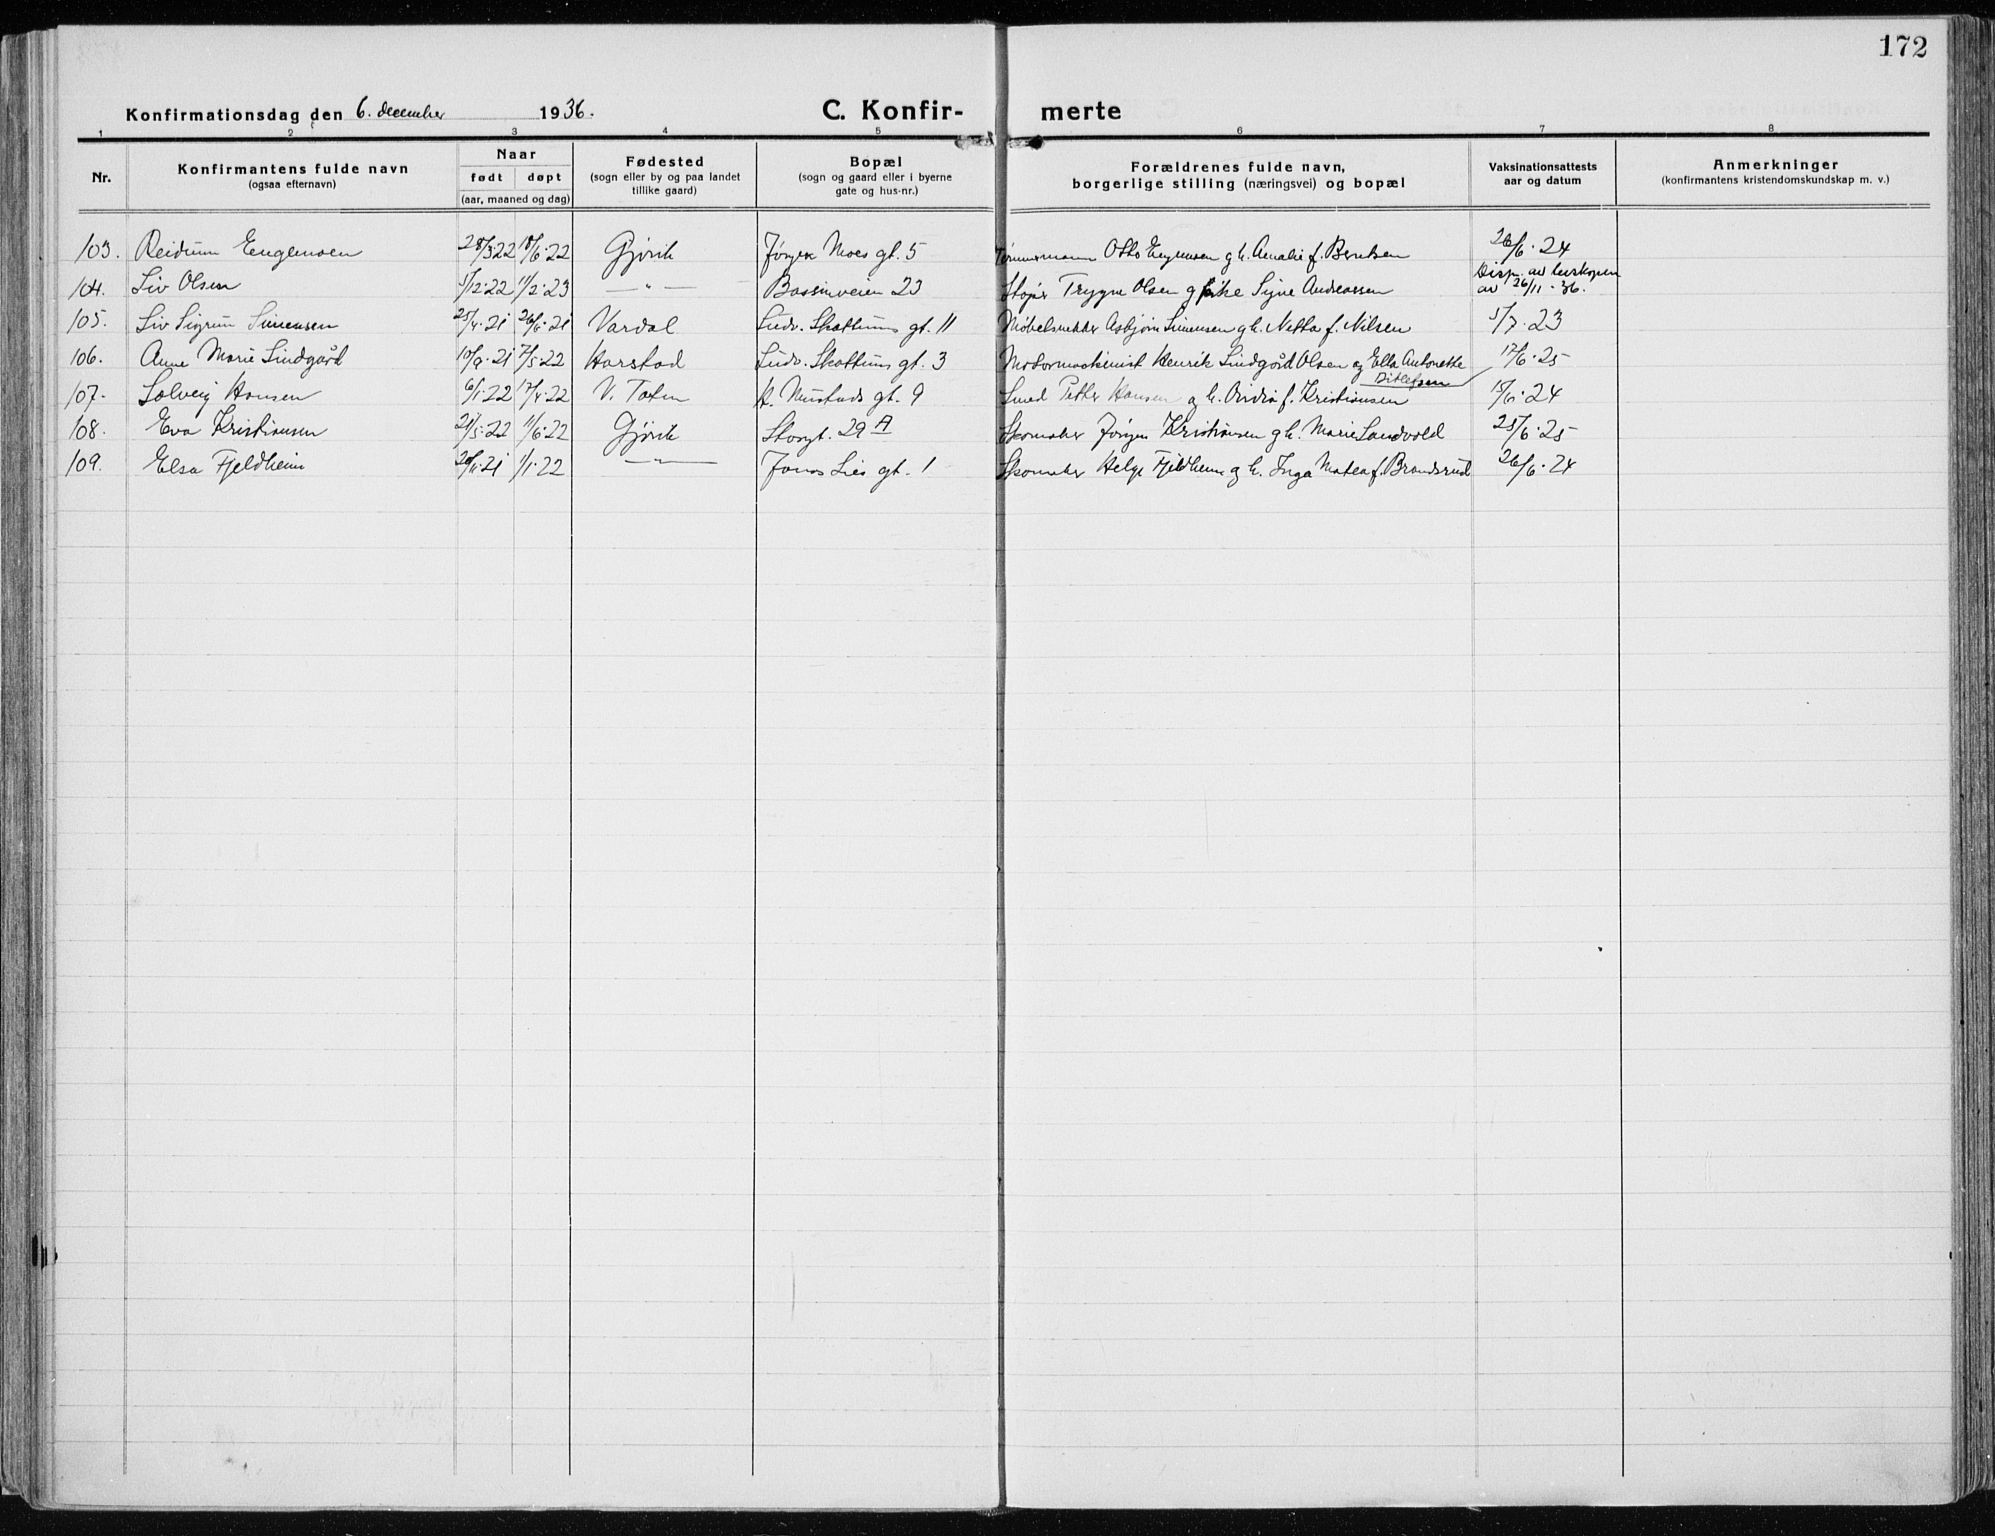 172
Konfirmationsdag den 6. december 1936. C. Konfir- merte
1 2 3 4 5 6 7 8
Nr. Konfirmantens fulde navn (ogsaa efternavn) Naar født døpt (aar, maaned og dag) Fødested (sogn eller by og paa landet tillike gaard) Bopæl (sogn og gaard eller i byerne gate og hus-nr.) Forældrenes fulde navn, borgerlige stilling (næringsvei) og bopæl Vaksinationsattests aar og datum Anmerkninger (konfirmantens kristendomskundskap m. v.)
103. Reidun Engensen 28/3 22 18/6·22 Gjøvik Jørgen Moes gt. 5 Tømmermann Otto Engensen g h. Amalie f. Berntsen 26/6·24
104. Liv Olsen 5/12·22 11/2·23 —"— Bassinveien 23 Stuper Trygve Olsen g pike Signe Andreassen Disp. av biskopen av 26/11·36.
105. Liv Sigrun Simensen 25/4·21 26/6·21 Vardal Ludv. Skattums gt. 11 Møbelsnekker Asbjørn Simensen g h. Netta f. Nilsen 5/7·23
106. Anne Marie Lindgård 10/9·21 7/5·22 Harstad Ludv. Skattums gt. 3 Motormaskinist Henrik Lindgård Olsen og Ella Antonette Ditlefsen 17/6·25
107. Solveig Hansen 6/1·22 17/4·22 V. Toten H. Mustads gt. 9 Smed Petter Hansen og h. f. Kristiansen 15/6·24
108. Eva Kristiansen 21/5·22 11/6·22 Gjøvik Storgt. 29 A Skomaker Jørgen Kristiansen g h. Marie Sandvold 25/6·25
109. Elsa Fjeldheim 20/11·21 1/1·22 —"— Jonas Lies gt. 1 Skomaker Helge Fjeldheim g h. Inga Matea f. Brandsrud 26/6·24